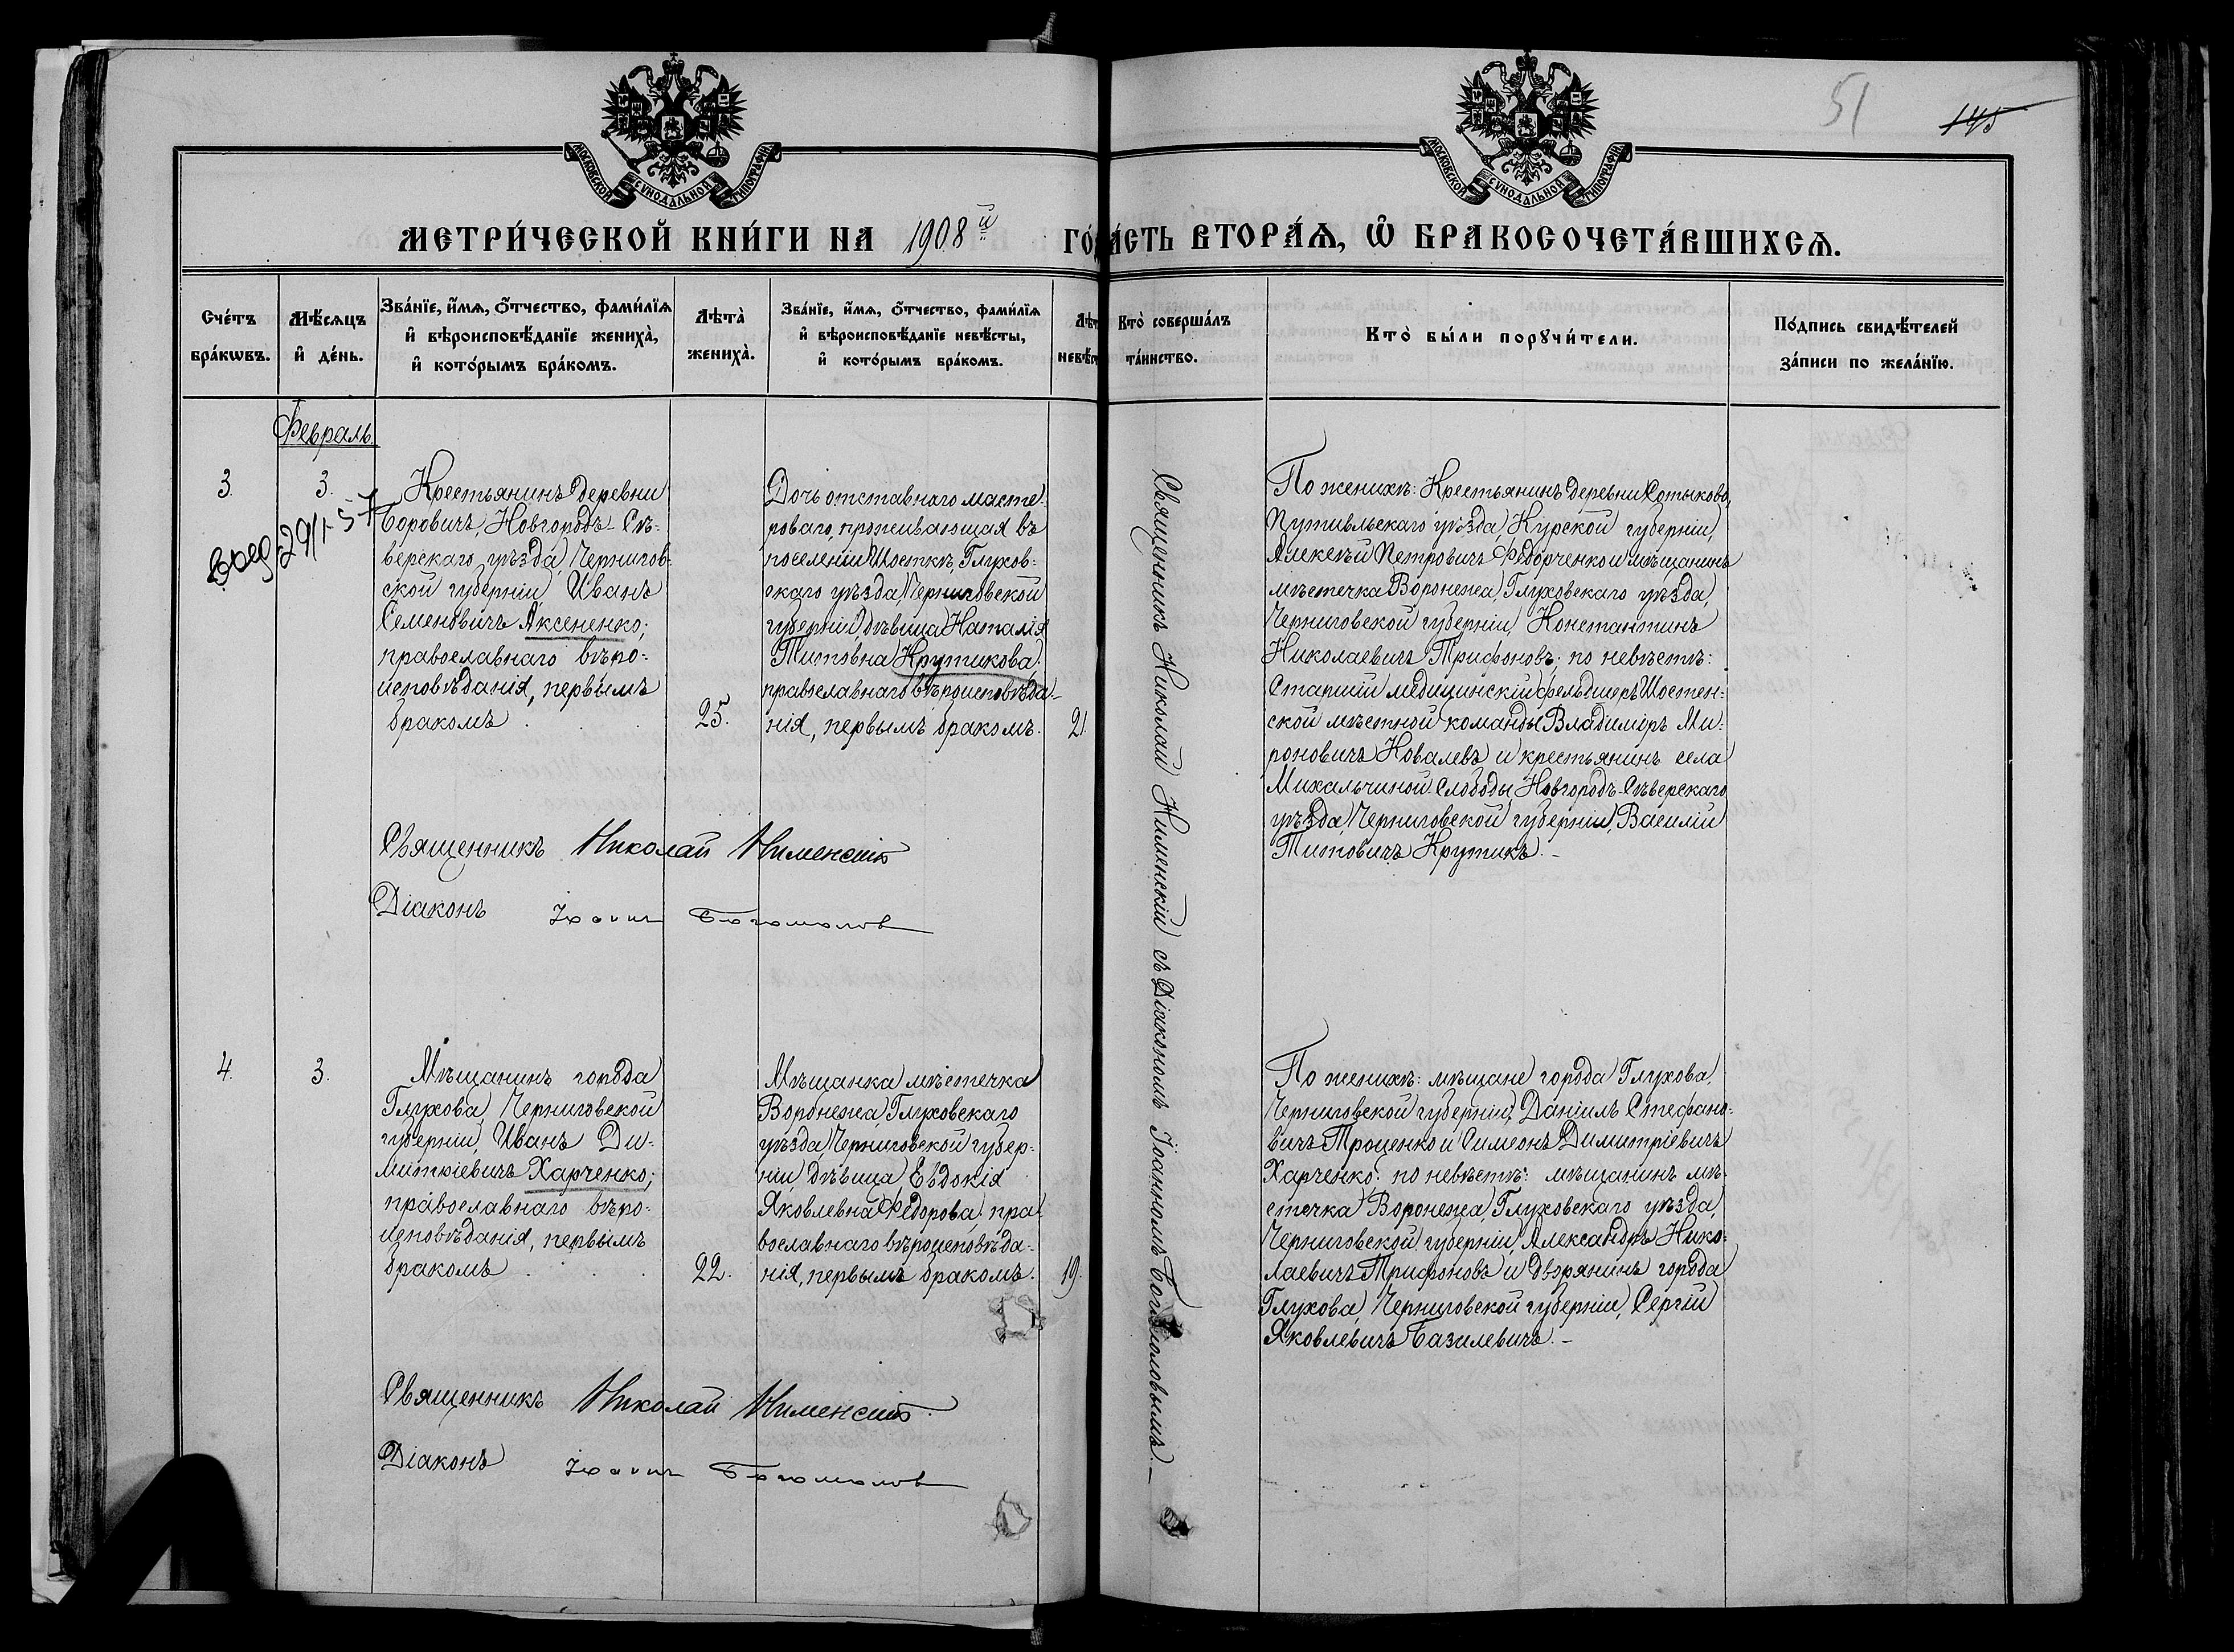 51
145
МОСКОВСКОЙ СѴНОДАЛЬНОЙ ТИПОГРАФІИ
МОСКОВСКОЙ СѴНОДАЛЬНОЙ ТИПОГРАФІИ
МЕТРИ́ЧЕСКОЙ КНИ́ГИ НА 1908й ГО
А́СТЬ ВТОРА́Ѧ, Ѽ БРАКОСОЧЕТА́ВШИХСѦ.
Сче́тъ бра́кѡвъ.
Мѣ́сѧцъ и҆ де́нь.
Зва́нїе, и҆́мѧ, ѻ҆́тчество, фами́лїѧ
и҆ вѣроисповѣ́данїе жениха̀,
и҆ кото́рымъ бра́комъ.
Лѣта̀ жениха̀.
Зва́нїе, и҆́мѧ, ѻ҆́тчество, фами́лїѧ
и҆ вѣроисповѣ́данїе невѣ́сты,
и҆ кото́рымъ бра́комъ.
Лѣт
невѣ́с
Кто̀ соверша́лъ
та́инство.
Кто̀ бы́ли порꙋчи́тели.
По́дпись свидѣ́телей
за́писи по жела́нїю.
Февраль.
3.
3.
29/1-57
Крестьянинъ деревни
Боровичъ, Новгородъ-Сѣ-
верскаго уѣзда, Чернигов-
ской губерніи Иванъ
Семеновичъ Аксененко;
православнаго вѣро-
исповѣданія, первымъ
бракомъ
25.
Дочь отставнаго масте-
роваго, проживающая въ
поселеніи Шосткѣ, Глухов-
скаго уѣзда, Черниговской
губерніи, дѣвица Наталія
Титовна Крутикова;
православнаго вѣроисповѣда-
нія, первымъ бракомъ.
21.
Священникъ Николай Нименскій съ Діакономъ Іоанномъ Богомоловымъ.
По женихѣ: Крестьянинъ деревни Сотыково,
Путивльскаго уѣзда, Курской губерніи,
Алексѣй Петровичъ Федорченко и мѣщанинъ
мѣстечка Воронежа, Глуховскаго уѣзда,
Черниговской губерніи, Константинъ
Николаевичъ Трифоновъ; по невѣстѣ:
Старшій медицинскій фельдшеръ Шостен-
ской мѣстной команды Владиміръ Ми-
роновичъ Ковалевъ и крестьянинъ села
Михальчиной-Слободы Новгородъ-Сѣверскаго
уѣзда, Черниговской губерніи, Василій
Титовичъ Крутикъ.
Священникъ Николай Нименскій
Діаконъ Іоаннъ Богомолов
4.
3.
Мѣщанинъ города
Глухова, Черниговской
губерніи, Иванъ Ди-
митріевичъ Харченко;
православнаго вѣро-
исповѣданія, первымъ
бракомъ
22.
Мѣщанка мѣстечка
Воронежа, Глуховскаго
уѣзда, Черниговской губер-
ніи, дѣвица Евдокія
Яковлевна Федорова, пра-
вославнаго вѣроисповѣда-
нія, первымъ бракомъ.
19.
По женихѣ: мѣщане города Глухова,
Черниговской губерніи, Даніилъ Стефано-
вичъ Троценко и Симеонъ Димитріевичъ
Харченко; по невѣстѣ: мѣщанинъ мѣ-
стечка Воронежа, Глуховскаго уѣзда,
Черниговской губерніи, Александръ Нико-
лаевичъ Трифоновъ и дворянинъ города
Глухова, Черниговской губерніи, Сергій
Яковлевичъ Базилевичъ.
Священникъ Николай Нименскій
Діаконъ Іоаннъ Богомолов